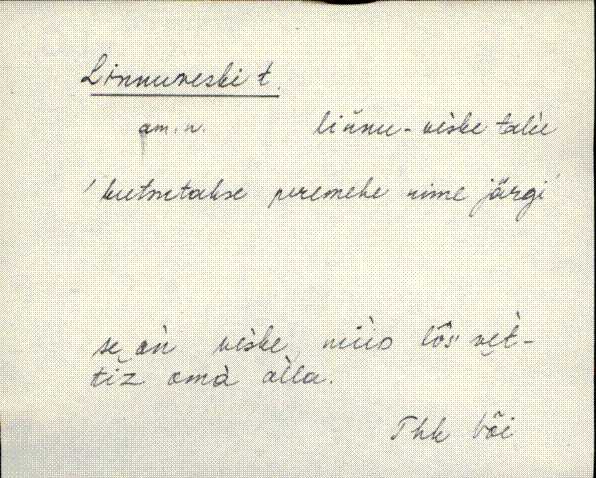 Linnuveski t.
am. n. liǹnu-vèske talùu
'kutsutakse peremehe nime järgi'
se òn vèske, nüìo lõ̭s vèt-
tìz omà àlla.
Thk Või